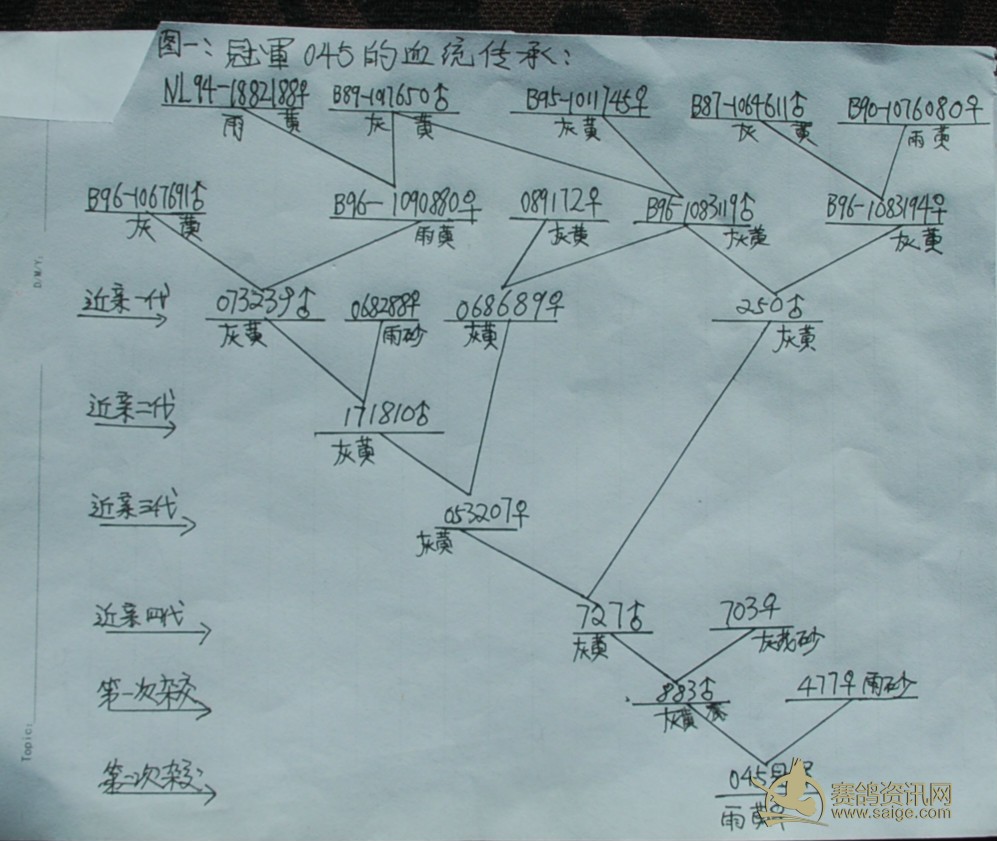 图一：冠軍045的血统传承：
NL94-1882188♀ B89-1097650♂ B95-1011745♀ B87-1064611♂ B90-1076080♀
雨 黄 灰 黄 灰黄 灰 黄 雨黄
B96-1067691♂ B96-1090880♀ 089172♀ B96-1083119♂ B96-1083194♀
灰 黄 雨黄 灰黄 灰黄 灰黄
近亲一代 073239♂ 068288♀ 068689♀ 250♂
灰黄 雨砂 灰黄 灰黄
近亲二代 171810♂
灰黄
近亲三代 053207♀
灰黄
近亲四代 727♂ 703♀
灰黄 砂
第一次杂交 883♂ 477♀雨砂
灰黄
第二次杂交 045
雨黄♀
赛鸽资讯网
www.saige.com
D/M/Y:
Topic: